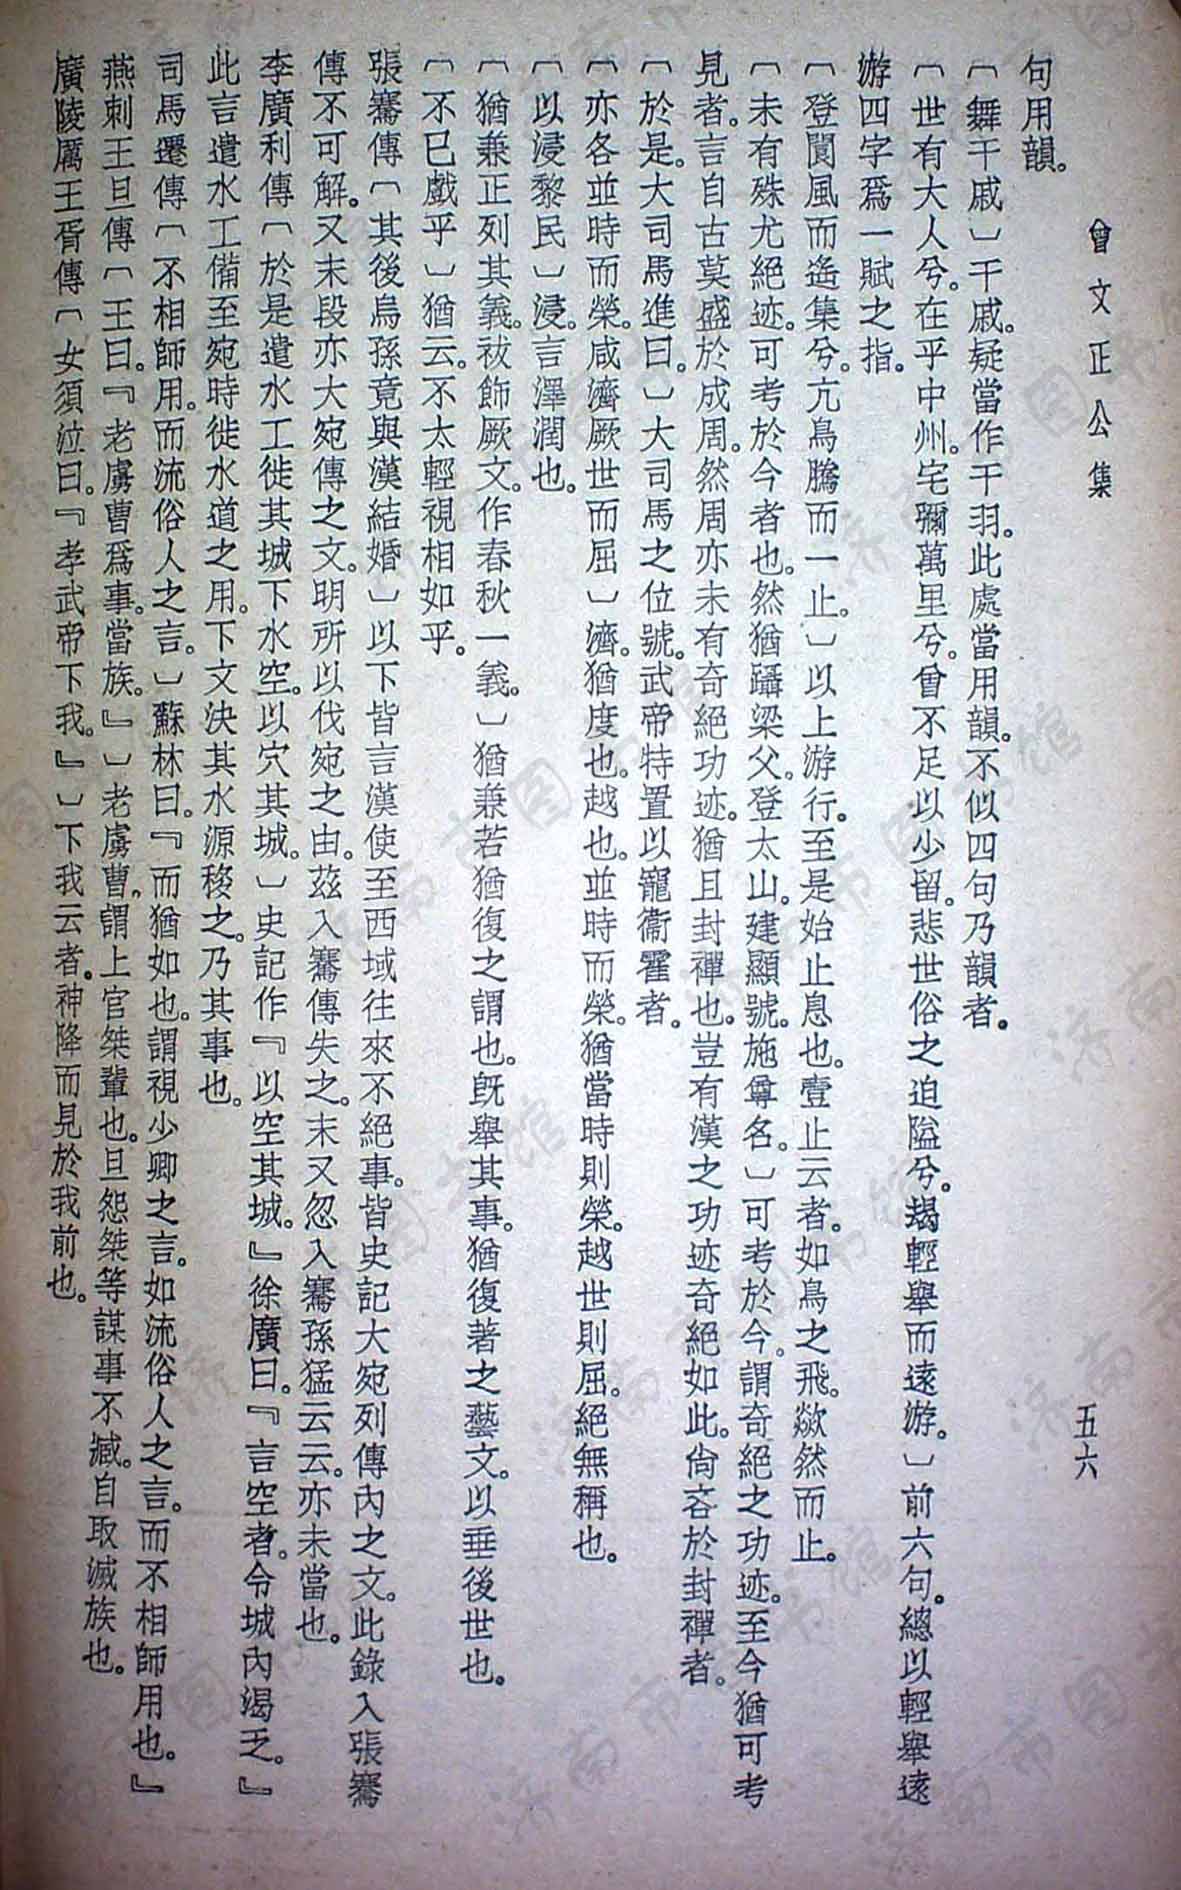 曾文正公集
五六
句用韻。
〔舞干戚〕干戚。疑當作干羽。此處當用韻。不似四句乃韻者。
〔世有大人兮。在乎中州。宅彌萬里兮。曾不足以少留。悲世俗之迫隘兮。朅輕舉而遠游。〕前六句。總以輕舉遠
游四字爲一賦之指。
〔登閬風而遙集兮。亢鳥騰而一止。〕以上游行。至是始止息也。壹止云者。如鳥之飛。歘然而止。
〔未有殊尤絕迹。可考於今者也。然猶躡梁父。登太山。建顯號。施尊名。〕可考於今。謂奇絕之功迹。至今猶可考
見者。言自古莫盛於成周。然周亦未有奇絕功迹。猶且封禪也。豈有漢之功迹奇絕如此。尙吝於封禪者。
〔於是。大司馬進曰。〕大司馬之位號。武帝特置以寵衞霍者。
〔亦各並時而榮。咸濟厥世而屈〕濟。猶度也。越也。並時而榮。猶當時則榮。越世則屈。絕無稱也。
〔以浸黎民〕浸。言澤潤也。
〔猶兼正列其義。祓飾厥文。作春秋一義。〕猶兼若猶復之謂也。旣舉其事。猶復著之藝文。以垂後世也。
〔不已戲乎〕猶云。不太輕視相如乎。
張騫傳〔其後烏孫竟與漢結婚〕以下皆言漢使至西域往來不絕事。皆史記大宛列傳內之文。此錄入張騫
傳不可解。又末段亦大宛傳之文。明所以伐宛之由。茲入騫傳失之。末又忽入騫孫猛云云。亦未當也。
李廣利傳〔於是遣水工徙其城下水空。以穴其城。〕史記作『以空其城。』徐廣曰。『言空者。令城內渴乏。』
此言遣水工備至宛時徙水道之用。下文決其水源移之。乃其事也。
司馬遷傳〔不相師用。而流俗人之言。〕蘇林曰。『而猶如也。謂視少卿之言。如流俗人之言。而不相師用也。』
燕剌王旦傳〔王曰。『老虜曹爲事。當族。』〕老虜曹。謂上官桀輩也。旦怨桀等謀事不臧。自取滅族也。
廣陵厲王胥傳〔女須泣曰。『孝武帝下我。』〕下我云者。神降而見於我前也。